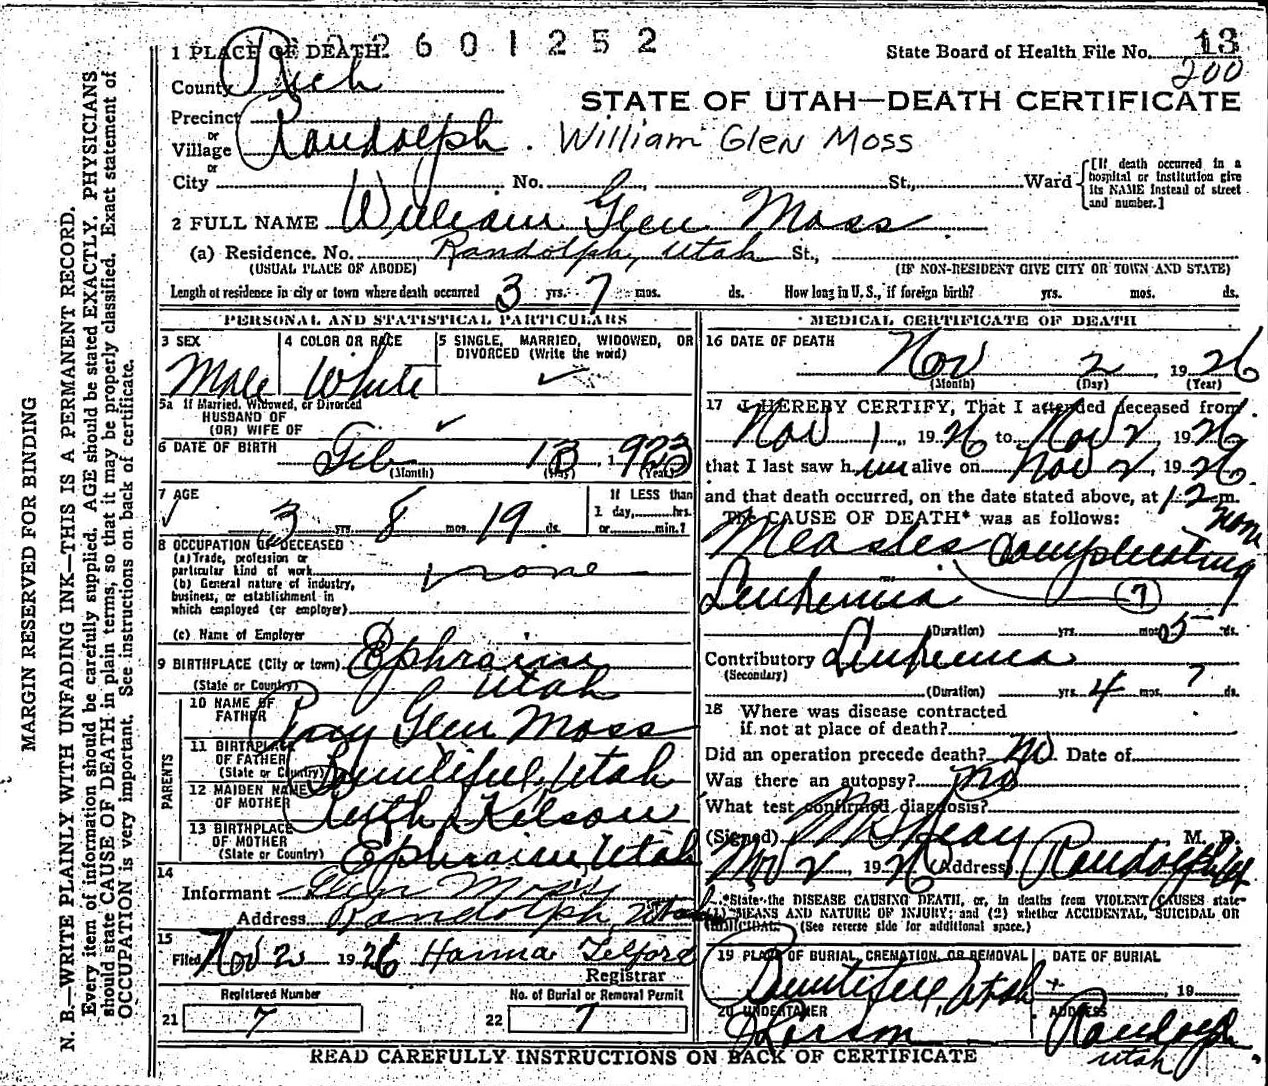 2601252
State Board of Health File No. 13
200
1 PLACE OF DEATH
County Rich
STATE OF UTAH—DEATH CERTIFICATE
Precinct
or
Village Randolph. William Glen Moss
or
City No. St., Ward
[If death occurred in a
hospital or institution give
its NAME instead of street
and number.]
2 FULL NAME William Glen Moss
(a) Residence. No. Randolph, Utah St.,
(USUAL PLACE OF ABODE) (IF NON-RESIDENT GIVE CITY OR TOWN AND STATE)
Length of residence in city or town where death occurred 3 yrs. 7 mos. ds. How long in U. S., if foreign birth? yrs. mos. ds.
PERSONAL AND STATISTICAL PARTICULARS
3 SEX
Male
4 COLOR OR RACE
White
5 SINGLE, MARRIED, WIDOWED, OR
DIVORCED (Write the word)
✓
5a If Married, Widowed, or Divorced
HUSBAND OF
(OR) WIFE OF ✓
6 DATE OF BIRTH Feb 13, 1923
(Month) (Day) (Year)
7 AGE
✓ 3 yrs. 8 mos. 19 ds.
If LESS than
1 day, hrs.
or min.?
8 OCCUPATION OF DECEASED
(a) Trade, profession or
particular kind of work none
(b) General nature of industry,
business, or establishment in
which employed (or employer)
(c) Name of Employer
9 BIRTHPLACE (City or town) Ephraim
(State or Country) Utah
PARENTS
10 NAME OF
FATHER Glen Moss
11 BIRTHPLACE
OF FATHER
(State or Country) Bountiful, Utah
12 MAIDEN NAME
OF MOTHER Ruth
13 BIRTHPLACE
OF MOTHER
(State or Country) Ephraim, Utah
14
Informant Glen Moss
Address Randolph, Utah
15
Filed Nov 2 1926 Hanna Telford
Registrar
Registered Number
21 7
No. of Burial or Removal Permit
22 7
MEDICAL CERTIFICATE OF DEATH
16 DATE OF DEATH
Nov 2, 1926
(Month) (Day) (Year)
17 I HEREBY CERTIFY, That I attended deceased from
Nov 1, 1926 to Nov 2, 1926
that I last saw him alive on Nov 2, 1926
and that death occurred, on the date stated above, at 12 m.
noon
The CAUSE OF DEATH* was as follows:
Measles complicating
Leukemia (7)
(Duration) yrs. mos. 5 ds.
Contributory Leukemia
(Secondary)
(Duration) yrs. 4 mos. ? ds.
18 Where was disease contracted
if not at place of death?
Did an operation precede death? No Date of
Was there an autopsy? no
What test confirmed diagnosis?
(Signed) M. D.
Nov 2, 1926 (Address) Randolph Ut
*State the DISEASE CAUSING DEATH, or, in deaths from VIOLENT CAUSES state
(1) MEANS AND NATURE OF INJURY; and (2) whether ACCIDENTAL, SUICIDAL OR
HOMICIDAL. (See reverse side for additional space.)
19 PLACE OF BURIAL, CREMATION, OR REMOVAL
Bountiful, Utah
DATE OF BURIAL
, 19
20 UNDERTAKER
ADDRESS
Randolph
Utah
READ CAREFULLY INSTRUCTIONS ON BACK OF CERTIFICATE
MARGIN RESERVED FOR BINDING
N. B.—WRITE PLAINLY WITH UNFADING INK—THIS IS A PERMANENT RECORD.
Every item of information should be carefully supplied. AGE should be stated EXACTLY. PHYSICIANS
should state CAUSE OF DEATH in plain terms, so that it may be properly classified. Exact statement of
OCCUPATION is very important. See instructions on back of certificate.